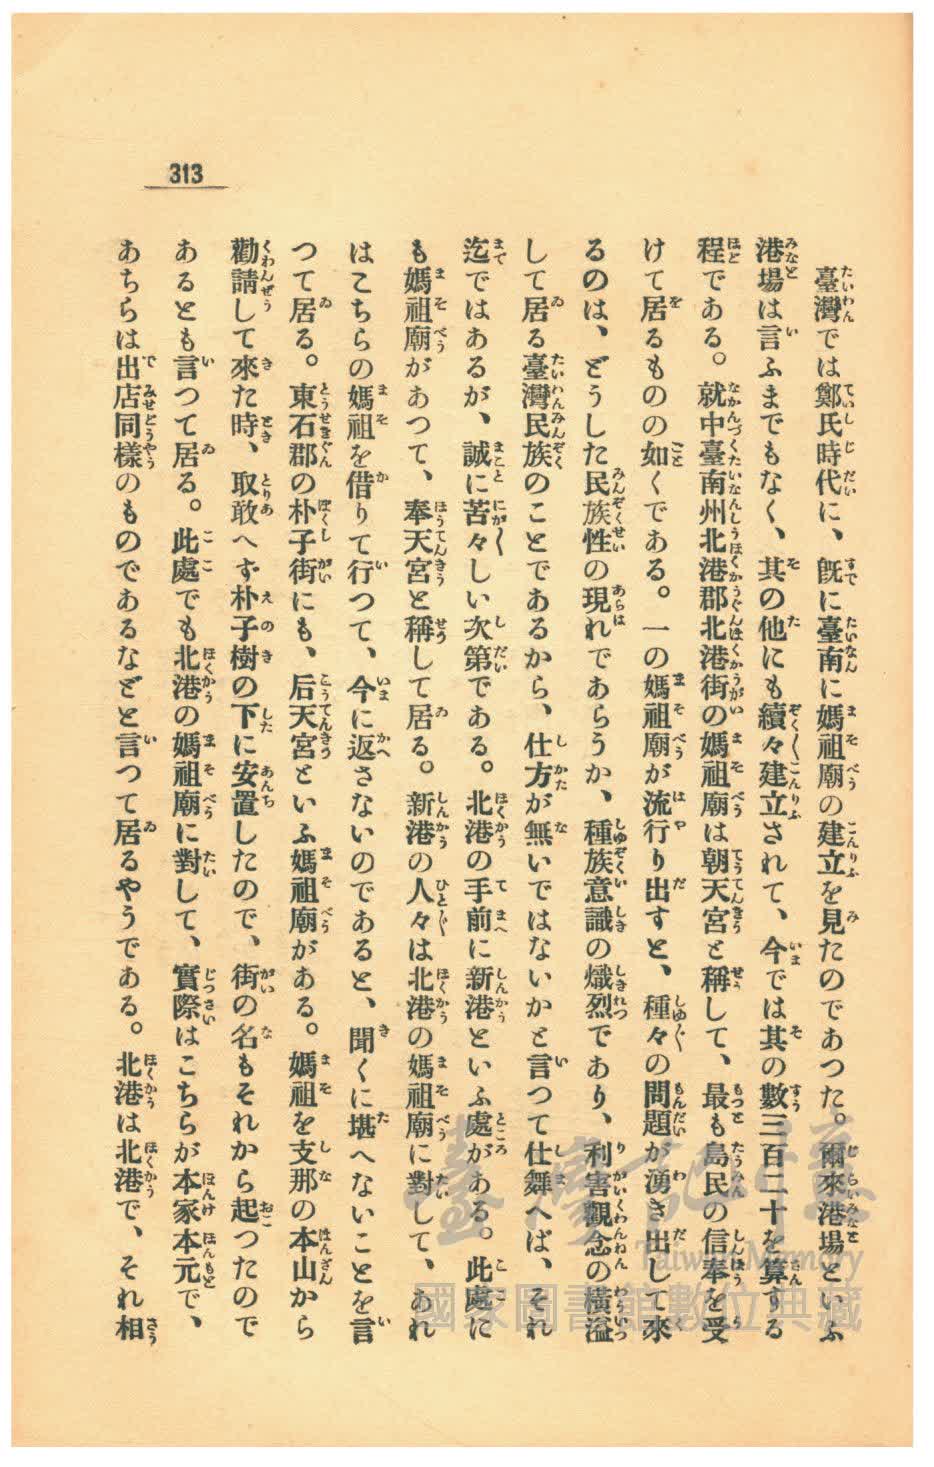 313
臺灣では鄭氏時代に、旣に臺南に媽祖廟の建立を見たのであつた。爾來港場といふ
港場は言ふまでもなく、其の他にも續々建立されて、今では其の數三百二十を算する
程である。就中臺南州北港郡北港街の媽祖廟は朝天宮と稱して、最も島民の信奉を受
けて居るものの如くである。一の媽祖廟が流行り出すと、種々の問題が湧き出して來
るのは、どうした民族性の現れであらうか、種族意識の熾烈であり、利害觀念の橫溢
して居る臺灣民族のことであるから、仕方が無いではないかと言つて仕舞へば、それ
迄ではあるが、誠に苦々しい次第である。北港の手前に新港といふ處がある。此處に
も媽祖廟があつて、奉天宮と稱して居る。新港の人々は北港の媽祖廟に對して、あれ
はこちらの媽祖を借りて行つて、今に返さないのであると、聞くに堪へないことを言
つて居る。東石郡の朴子街にも、后天宮といふ媽祖廟がある。媽祖を支那の本山から
勸請して來た時、取敢へず朴子樹の下に安置したので、街の名もそれから起つたので
あるとも言つて居る。此處でも北港の媽祖廟に對して、實際はこちらが本家本元で、
あちらは出店同樣のものであるなどと言つて居るやうである。北港は北港で、それ相
臺灣記憶
Taiwan Memory
國家圖書館數位典藏